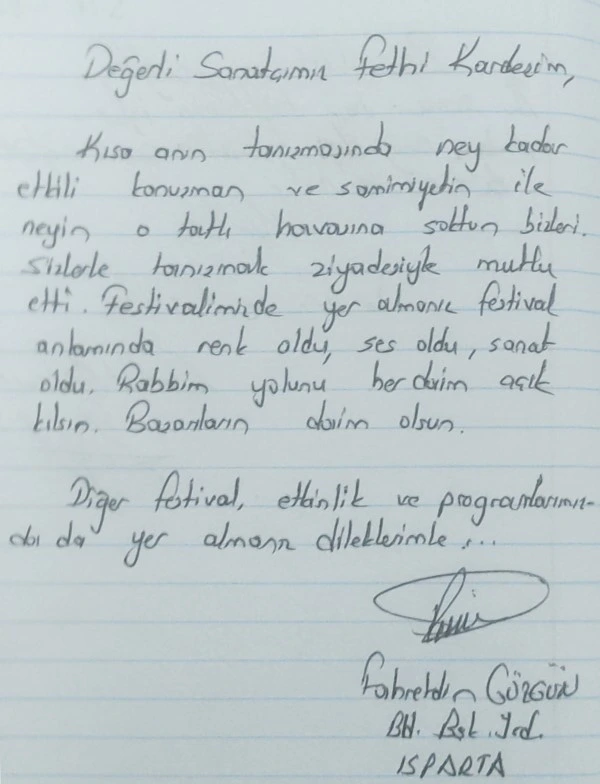 Değerli Sanatçımız Fethi Kardeşim,
Kısa anın tanışmasında ney kadar
etkili konuşman ve samimiyetin ile
neyin o tatlı havasına soktun bizleri.
Sizlerle tanışmak ziyadesiyle mutlu
etti. Festivalimizde yer almanız festival
anlamında renk oldu, ses oldu, sanat
oldu. Rabbim yolunu her daim açık
kılsın. Başarıların daim olsun.
Diğer festival, etkinlik ve programlarımız-
da yer almanız dileklerimle...
Fahrettin GÖZGÜN
Bşk. Yrd.
ISPARTA